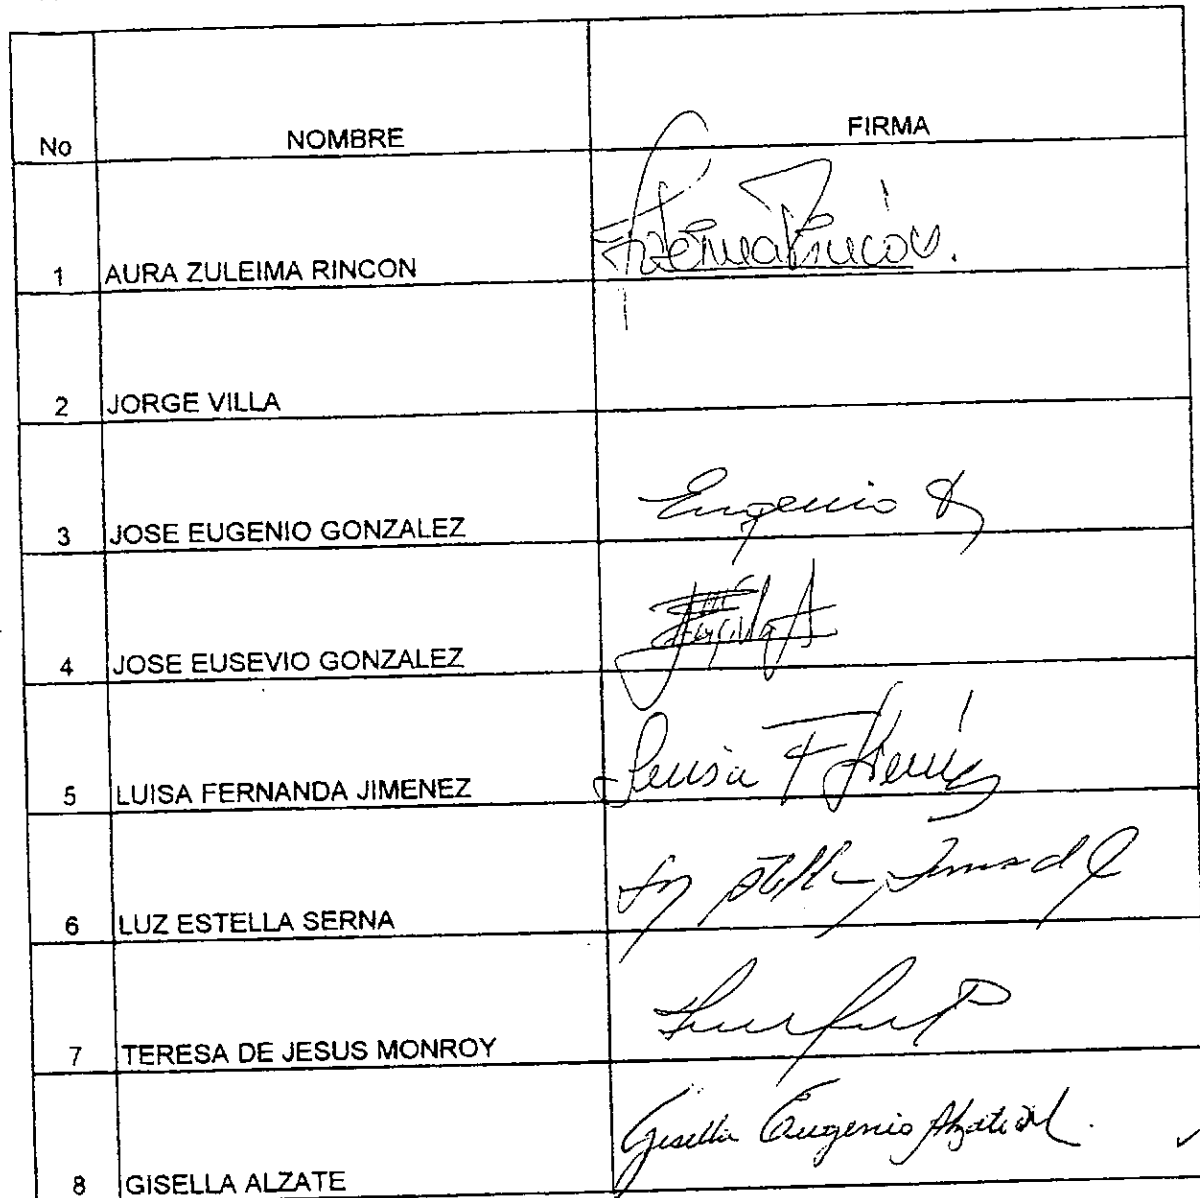 No NOMBRE FIRMA
1 AURA ZULEIMA RINCON
2 JORGE VILLA
3 JOSE EUGENIO GONZALEZ Eugenio
4 JOSE EUSEVIO GONZALEZ
5 LUISA FERNANDA JIMENEZ Luisa F
6 LUZ ESTELLA SERNA
7 TERESA DE JESUS MONROY
8 GISELLA ALZATE Gisella Eugenia Alzate